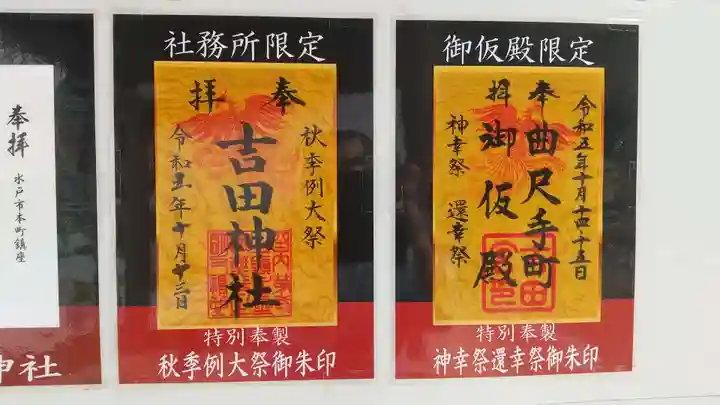 奉拝
水戸市本町鎮座
神社
社務所限定
奉拝
秋季例大祭
吉田神社
令和五年十月十三日
特別奉製
秋季例大祭御朱印
御仮殿限定
奉拝
令和五年十月十四・十五日
曲尺手町
御仮殿
神幸祭 還幸祭
特別奉製
神幸祭還幸祭御朱印